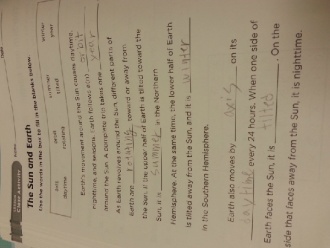 The Sun and Earth
Use the words in the box to fill in the blanks below.
axis orbit summer winter
daytime rotating tilted year
Earth's movement around the Sun causes daytime,
nighttime, and seasons. Earth follows a(n) orbit
around the Sun. A complete trip takes one year.
As Earth revolves around the Sun, different parts of
Earth are rotating toward or away from
the Sun. If the upper half of Earth is tilted toward the
Sun, it is summer in the Northern
Hemisphere. At the same time, the lower half of Earth
is tilted away from the Sun, and it is winter
in the Southern Hemisphere.
Earth also moves by axis on its
daytime every 24 hours. When one side of
Earth faces the Sun it is tilted. On the
side that faces away from the Sun, it is nighttime.